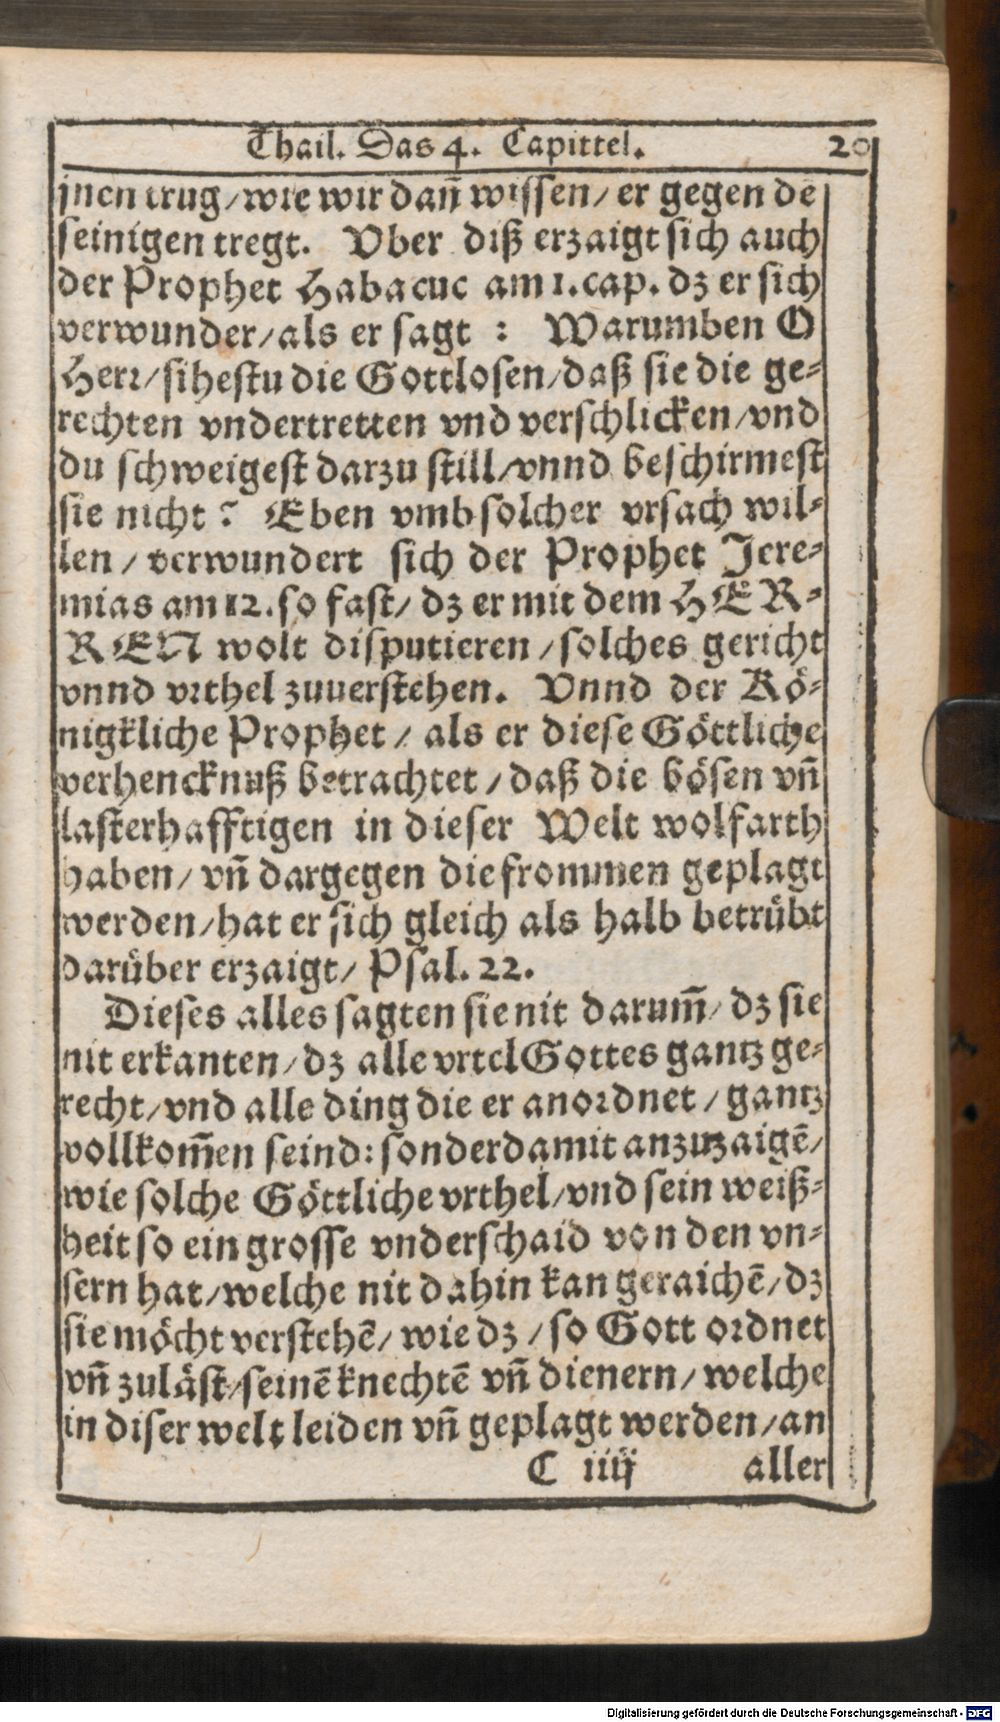 Thail. Das 4. Capittel. 20
jnen trug/wie wir dañ wissen/er gegen dē
seinigen tregt. Vber diß erzaigt sich auch
der Prophet Habacuc am 1. cap. dz er sich
verwunder/als er sagt : Warumben O
Herr/sihestu die Gottlosen/daß sie die ge-
rechten vndertretten vnd verschlicken/vnd
du schweigest darzu still/vnnd beschirmest
sie nicht? Eben vmb solcher vrsach wil-
len/verwundert sich der Prophet Jere-
mias am 12. so fast/dz er mit dem HER-
REN wolt disputieren/solches gericht
vnnd vrthel zuuerstehen. Vnnd der Kö-
nigkliche Prophet/als er diese Göttliche
verhencknuß betrachtet/daß die bösen vñ
lasterhafftigen in dieser Welt wolfarth
haben/vñ dargegen die frommen geplagt
werden/hat er sich gleich als halb betrübt
darüber erzaigt/Psal. 22.
Dieses alles sagten sie nit darum̃/dz sie
nit erkanten/dz alle vrtel Gottes gantz ge-
recht/vnd alle ding die er anordnet/gantz
vollkom̃en seind: sonder damit anzuzaigē/
wie solche Göttliche vrthel/vnd sein weiß-
heit so ein grosse vnderschaid von den vn-
sern hat/welche nit dahin kan geraichē/dz
sie möcht verstehē/wie dz/so Gott ordnet
vñ zuläst/seinē knechtē vñ dienern/welche
in diser welt leiden vñ geplagt werden/an
C iiij aller
Digitalisierung gefördert durch die Deutsche Forschungsgemeinschaft - DFG